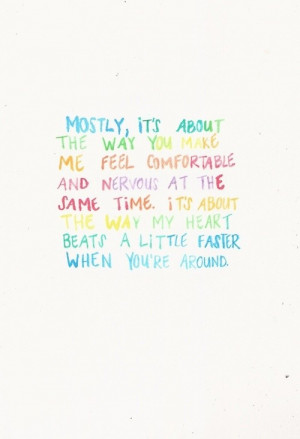 MOSTLY, iT'S ABOUT
THE WAY YOU MAKE
ME FEEL COMFORTABLE
AND NERVOUS AT THE
SAME TIME. iT'S ABOUT
THE WAY MY HEART
BEATS A LiTTLE FASTER
WHEN YOU'RE AROUND.